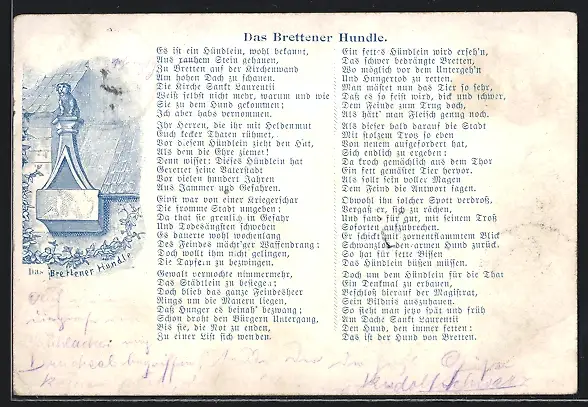 Das Brettener Hundle.
Es ist ein Hündlein, wohl bekannt,
Aus rauhem Stein gehauen,
Zu Bretten auf der Kirchenwand
Am hohen Dach zu schauen.
Die Kirche Sankt Laurentii
Weiß selbst nicht mehr, warum und wie
Sie zu dem Hund gekommen;
Ich aber habs vernommen.
Ihr Herren, die ihr mit Heldenmut
Euch kecker Thaten rühmet,
Vor diesem Hündlein zieht den Hut,
Als dem die Ehre ziemet!
Denn wisset: Dieses Hündlein hat
Gerettet seine Vaterstadt
Vor vielen hundert Jahren
Aus Jammer und Gefahren.
Einst war von einer Kriegerschar
Die fromme Stadt umgeben;
Da that sie greulich in Gefahr
Und Todesängsten schweben
Es dauerte wohl wochenlang
Des Feindes mächt'ger Waffendrang;
Doch wollt ihm nicht gelingen,
Die Tapfern zu bezwingen.
Gewalt vermochte nimmermehr,
Das Städtlein zu besiegen;
Doch blieb das ganze Feindesheer
Rings um die Mauern liegen.
Daß Hunger es beinah' bezwang;
Schon droht den Bürgern Untergang,
Bis sie, die Not zu enden,
Zu einer List sich wenden.
Ein fettes Hündlein wird erseh'n,
Das schwer bedrängte Bretten,
Wo möglich vor dem Untergeh'n
Und Hungertod zu retten.
Man mästet nun das Tier so sehr,
Daß es so feist wird, dick und schwer,
Dem Feinde zum Trug doch,
Als hätt' man Fleisch genug noch.
Als dieser bald darauf die Stadt
Mit stolzem Trotz so eben
Von neuem aufgefordert hat,
Sich endlich zu ergeben:
Da kroch gemächlich aus dem Thor
Ein fett gemästet Tier hervor.
Als sollt sein voller Magen
Dem Feind die Antwort sagen.
Obwohl ihn solcher Spott verdroß,
Vergaß er, sich zu rächen,
Und fand für gut, mit seinem Troß
Sofort aufzubrechen.
Er schickt mit zornentflammtem Blick
Schwanzlos den armen Hund zurück.
So hat für fette Bissen
Das Hündlein büßen müssen.
Doch um dem Hündlein für die That
Ein Denkmal zu erbauen,
Beschloß hierauf der Magistrat,
Sein Bildnis auszuhauen.
So sieht man jetzo spät und früh
Am Dache Sankt Laurentii
Den Hund, den immer fetten:
Das ist der Hund von Bretten.
Das Brettener Hundle